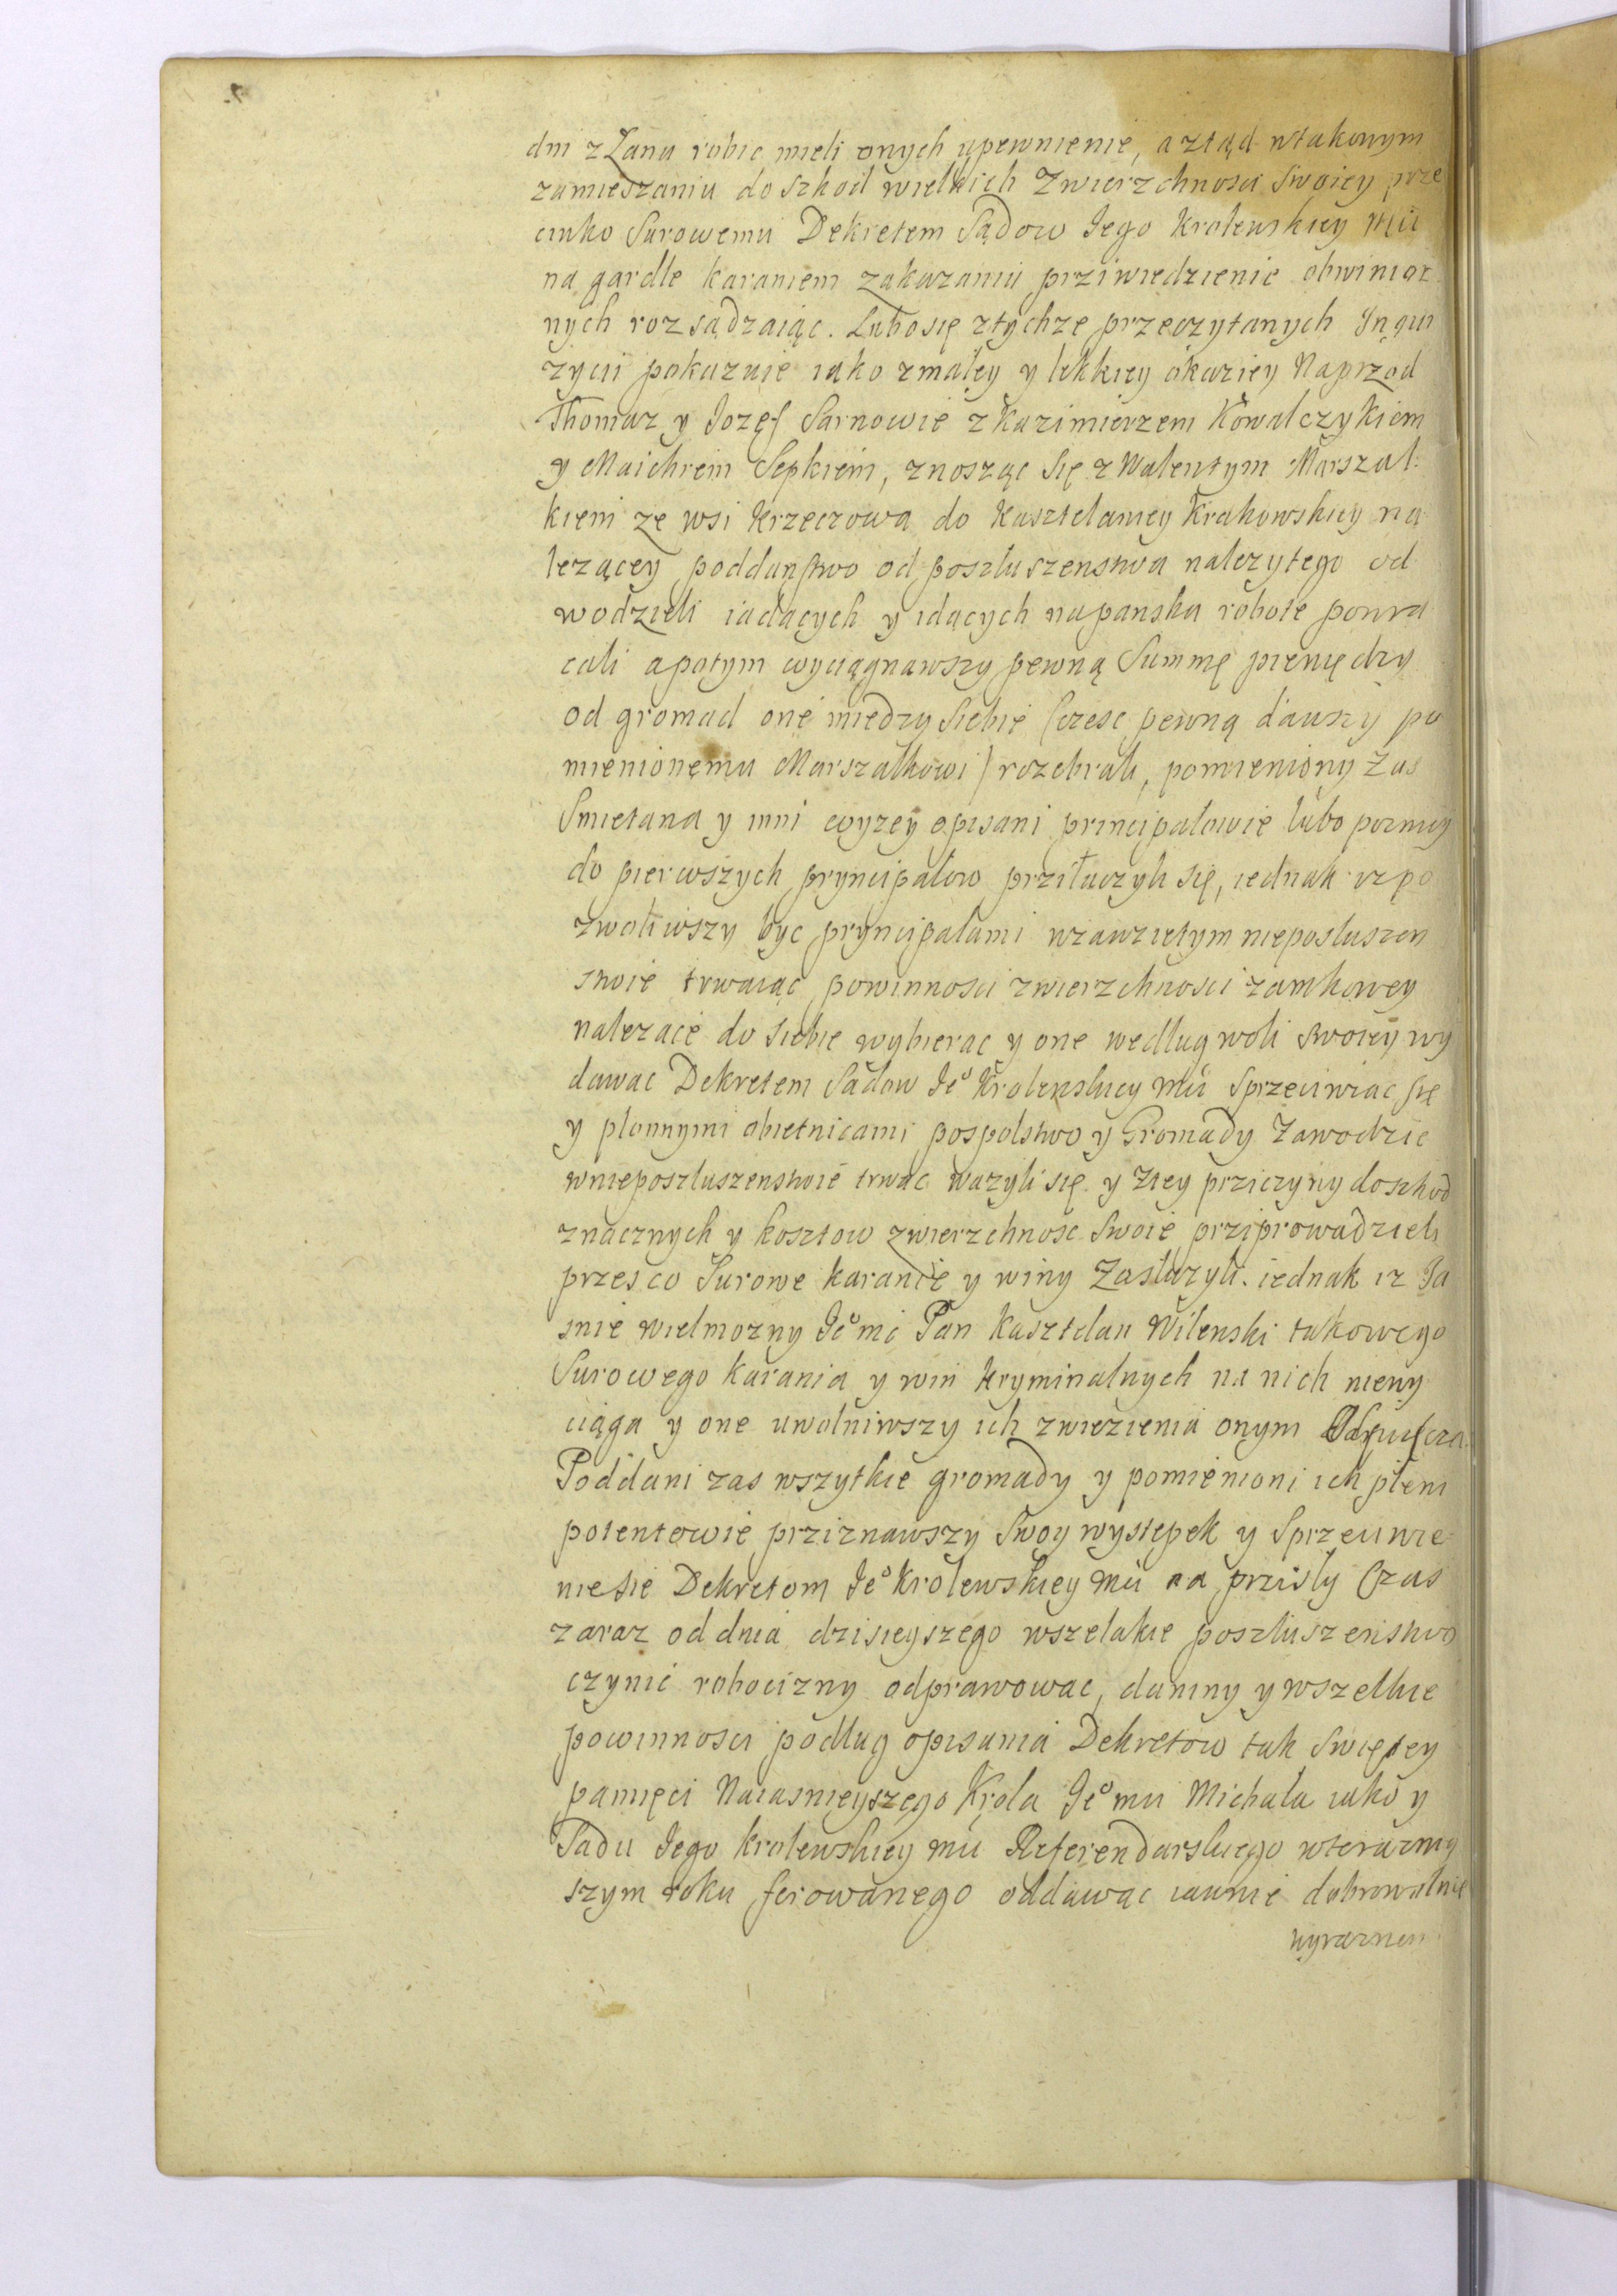 dni z Łanu robic mieli onych upewnienie, a ztąd wtakowym
zamieszaniu do szkod wielkich Zwierzchnosci Swoiey prze
ciwko Surowemu Dekretem Sądow Jego Krolewskiey Mći
na gardle karaniem zakazaniu prziwiedzienie obwinion
nych rozsądzaiąc. Lubo się ztychze przeczytanych Inqui
zycii pokazuie iako zmałey y lekkiey okaziey Naprzod
Thomaz y Jozef Sarnowie z Kazimierzem Kowalczykiem
y Maichrem Sepkiem, znosząc się z Walentym Marszał
kiem ze wsi Krzeczowa do Kasztelaniey Krakowskiey na
lezącey poddaństwo od poszłuszenstwa nalezytego od
wodzieli iadących y idących na panska robote powra
cali a potym wyciągnawszy pewną Summę pieniędzy
od gromad one miedzy siebie (czesc pewną dawszy po
mienionemu Marszałkowi) rozebrali, pomieniony Zas
Smietana y inni wyzey opisani principałowie lubo pozniey
do pierwszych pryncipałow prziłaczyli się, iednak iz po
zwoliwszy byc pryncipałami wzawzietym niepostuszen
stwie trwaiąc powinnosci zwierzchnosci zamkowey
nalezace do siebie wybierac y one według woli swoiey wy
dawac Dekretem Sadow Jeº Krolewskiey Mći Sprzeciwiac się
y płonnymi obietnicami pospolstwo y Gromady Zawodzic
wnieposzłuszenstwie trwac wazyli się y ztey prziczyny do szkod
znacznych y kosztow zwierzchnosc Swoie prziprowadzieli
przes co Surowe karanie y winy Zasłuzyli. iednak iz Ja
snie wielmozny Jeº mć Pan Kasztelan Wilenski takowego
Surowego karania y win kryminalnych na nich niewy
ciąga y one uwolniwszy ich zwiezienia onym Odpuszcza
Poddani zas wszytkie gromady y pomienioni ich pleni
potentowie prziznawszy Swoy wystepek y Sprzeciwie
nie sie Dekretom Jeº Krolewskiey Mći na prziszły Czas
zaraz od dnia dzisieyszego wszelakie poszłuszenstwo
czynic robocizny odprawowac, daniny y wszelkie
powinnosci podług opisania Dekretow tak Swiętey
pamięci Naiasnieyszego Krola Jeº mći Michała iako y
Sadu Jego Krolewskiey Mći Referendarskiego wterazniey
szym roku ferowanego oddawac iawnie dobrowolnie